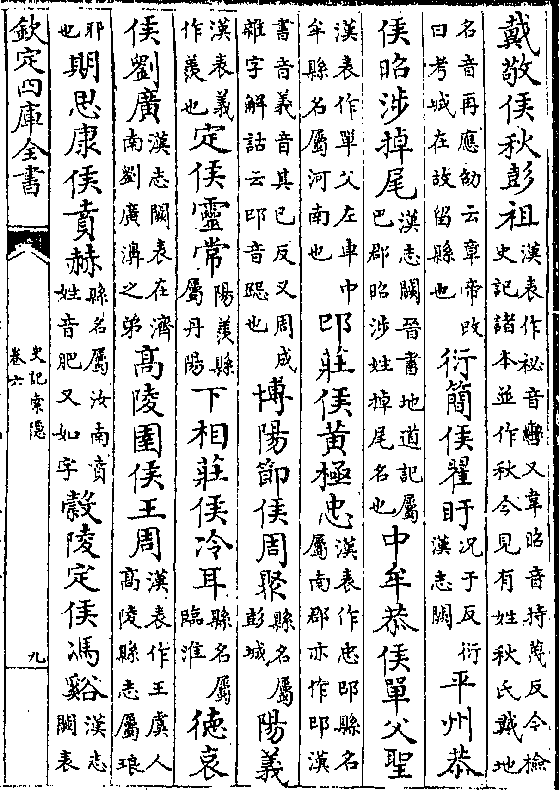 戴敬侯秋彭祖漢表作祕音轡又韋昭音持蔑反今檢史記諸本並作秋今見有姓秋氏戴地
名音再應劭云章帝改曰考城在故留縣也 衍簡侯翟盱况于反衍漢志闕 平州恭
侯昭涉掉尾漢志闕晉書地道記屬巴郡昭涉姓掉尾名也 中牟恭侯單父聖
漢表作單父左車中牟縣名屬河南也 邔莊侯黄極忠漢表作忠邔縣名屬南郡亦作邔漢
書音義音其已反又周成雜字解詁云邔音跽也 博陽節侯周聚縣名屬彭城 陽義
定侯靈常漢表義作羨也陽羨縣屬丹陽 下相莊侯冷耳縣名屬臨淮 德哀
侯劉廣漢志闕表在濟南劉廣濞之弟 高陵圉侯王周漢表作王虞人高陵縣志屬琅
邪也 期思康侯賁赫縣名屬汝南賁姓音肥又如字 穀陵定侯馮谿漢志闕表
欽定四庫全書
史記索隱
卷六
九